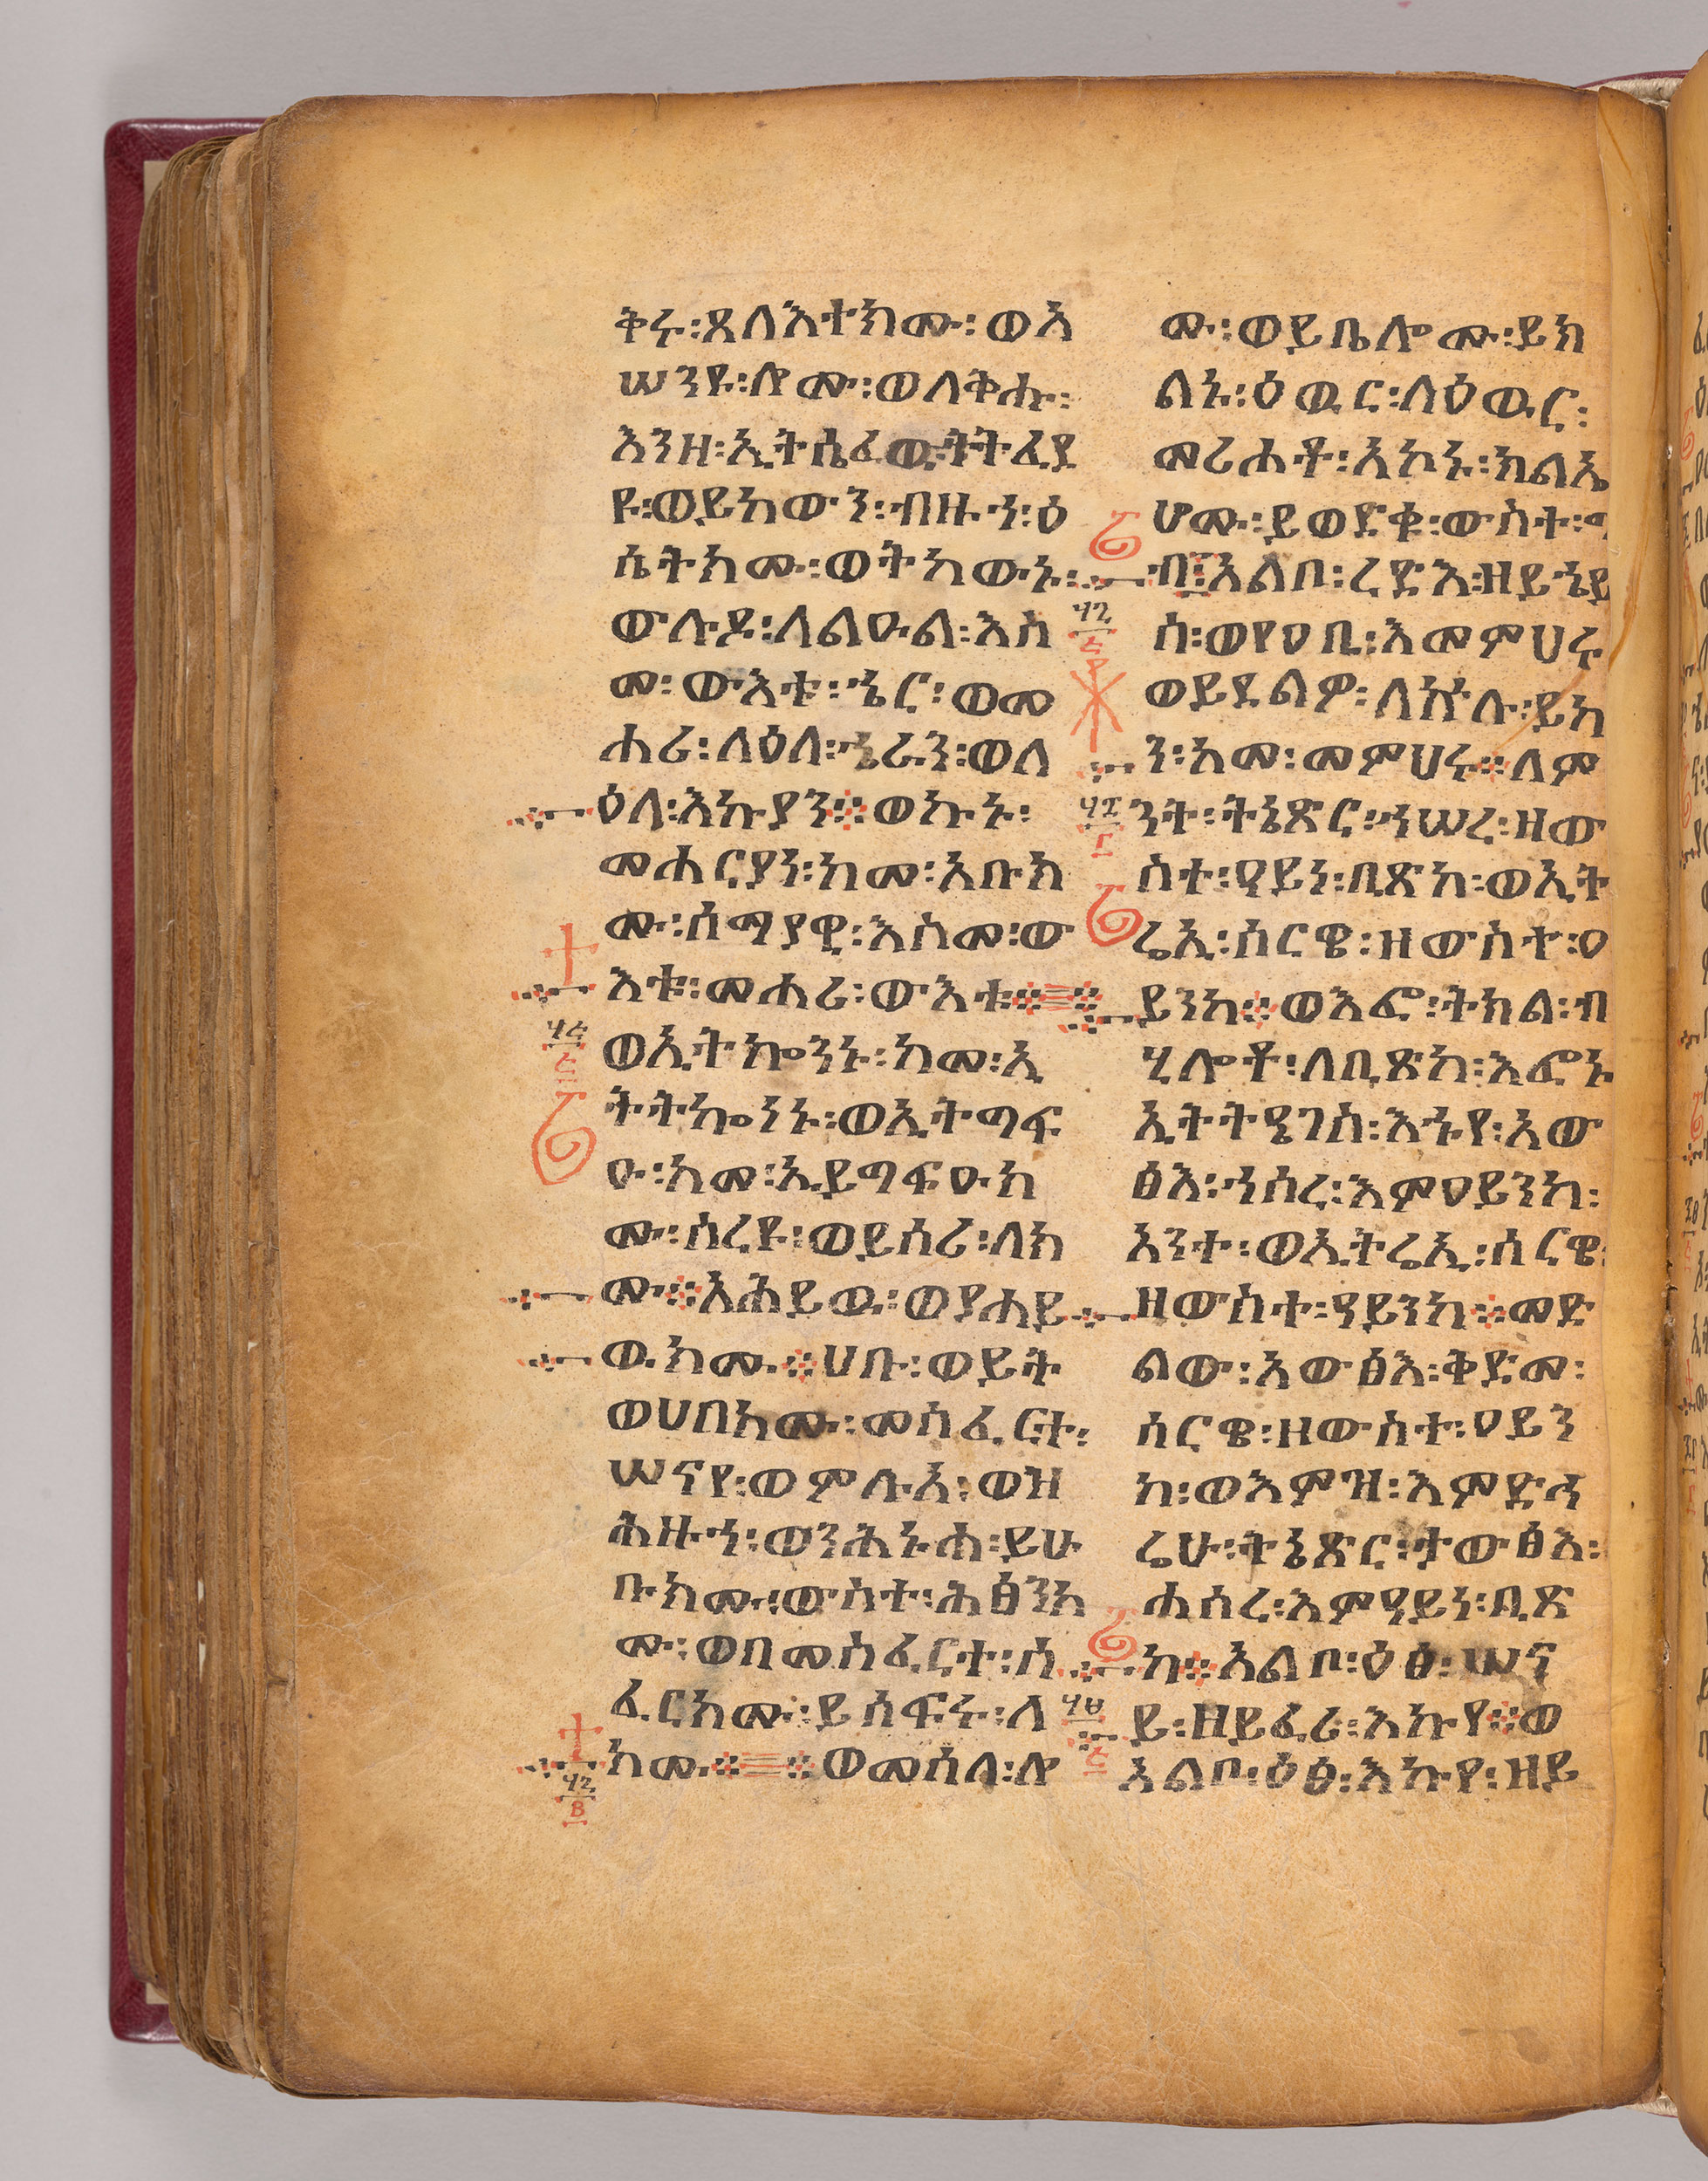 ቅሩ፡ጸላእተክሙ፡ወአ
ሠንዩ፡ሎሙ፡ወለቅሑ፡
እንዘ፡ኢትሴፈዉ፡ትትፈደ
ዩ፡ወይከውን፡ብዙኅ፡ዕ
ሴትክሙ፡ወትከውኑ፡
ውሉደ፡ለልዑል፡እስ
መ፡ውእቱ፡ኄር፡ወመ
ሐሪ፡ለዕለ፡ኄራን፡ወለ
ዕለ፡እኩያን፨ወኩኑ፡
መሐርያነ፡ከመ፡አቡክ
ሙ፡ሰማያዊ፡እስመ፡ው
እቱ፡መሐሪ፡ውእቱ፨፨
ወኢትኰንኑ፡ከመ፡ኢ
ትትኰነኑ፡ወኢትግፍ
ዑ፡ከመ፡ኢይግፍዑክ
ሙ፡ስረዩ፡ወይሰሪ፡ለክ
ሙ፨አሕይዉ፡ወያሐይ
ዉክሙ፨ሀቡ፡ወይት
ወሀበክሙ፡መስፈርት፡
ሠናየ፡ወምሉአ፡ወዝ
ሕዙኅ፡ወንሕኑሐ፡ይሁ
ቡክሙ፡ውስተ፡ሕፅንክ
ሙ፡ወበመስፈርተ፡ሰ
ፈርክሙ፡ይሰፍሩ፡ለ
ክሙ፨፨ወመሰለ፡ሎ
ሙ፡ወይቤሎሙ፡ይክ
ልኑ፡ዕዉር፡ለዕዉር፡
መሪሐቶ፡አኮኑ፡ክልኤ
ሆሙ፡ይወድቁ፡ውስተ፡ግ
ብ፨አልቦ፡ረድእ፡ዘይኄይ
ስ፡ወየዐቢ፡እመምህሩ
ወይደልዎ፡ለኵሉ፡ይኩ
ን፡ከመ፡መምህሩ፨ለም
ንት፡ትኔጽር፡ኀሠረ፡ዘው
ስተ፡ዓይነ፡ቢጽከ፡ወኢት
ሬኢ፡ሰርዌ፡ዘውስተ፡ዐ
ይንከ፨ወእፎ፡ትክል፡ብ
ሂሎቶ፡ለቢጽከ፡እፎኑ
ኢትትዔገስ፡እኁየ፡አው
ፅእ፡ኀሰረ፡እምዐይንከ፡
አንተ፡ወኢትሬኢ፡ሰርዌ፡
ዘውስተ፡ዓይንከ፨መድ
ልው፡አውፅእ፡ቅድመ፡
ሰርዌ፡ዘውስተ፡ዐይን
ከ፡ወእምዝ፡እምድኃ
ሬሁ፡ትኔጽር፡ታውፅእ፡
ሐሰረ፡እምዓይነ፡ቢጽ
ከ፨አልቦ፡ዕፅ፡ሠና
ይ፡ዘይፈሪ፡እኩየ፨ወ
አልቦ፡ዕፅ፡እኩየ፡ዘይ